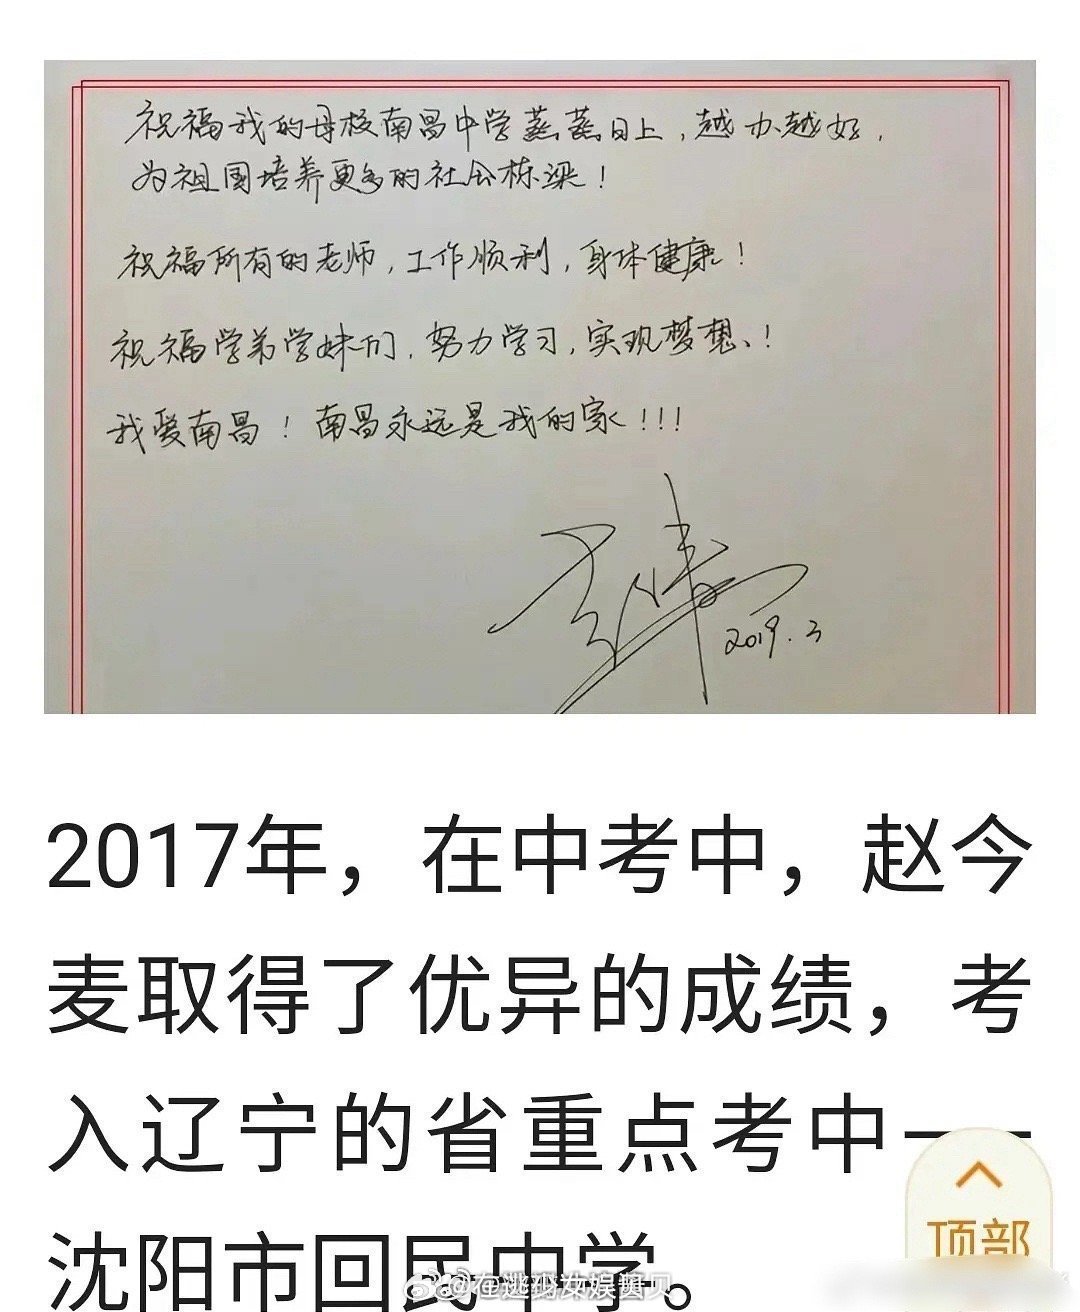 祝福我的母校南昌中学蒸蒸日上，越办越好，
为祖国培养更多的社会栋梁！
祝福所有的老师，工作顺利，身体健康！
祝福学弟学妹们，努力学习，实现梦想、！
我爱南昌！南昌永远是我的家！！！
2019.3
2017年，在中考中，赵今
麦取得了优异的成绩，考
入辽宁的省重点考中——
沈阳市回民中学。
顶部